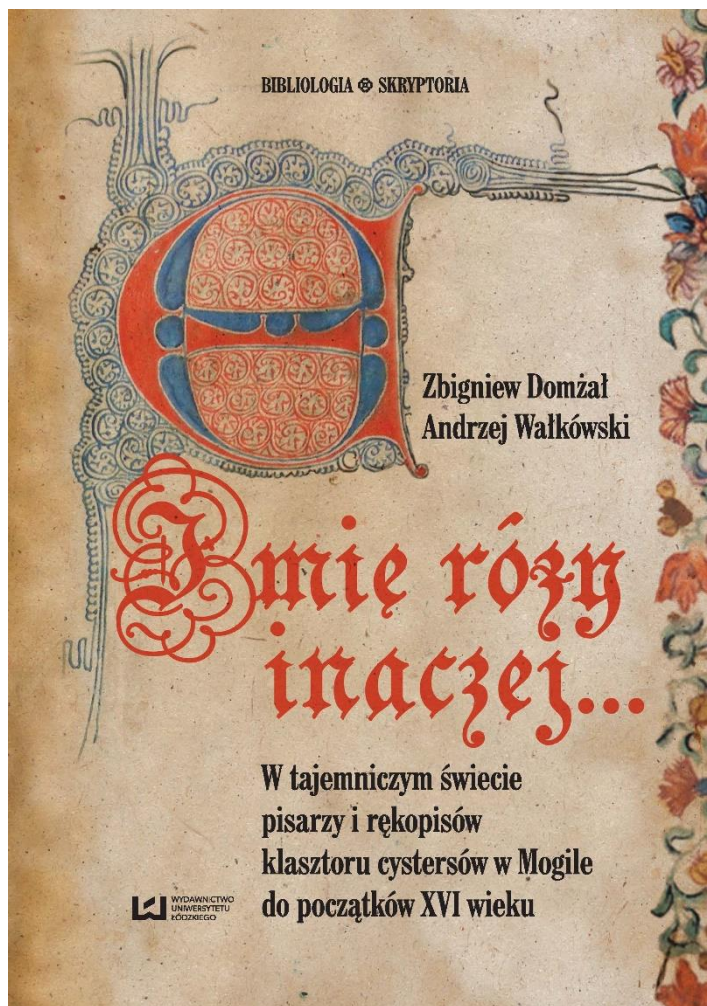 BIBLIOLOGIA ⊕ SKRYPTORIA
Zbigniew Domżał
Andrzej Wałkówski
Imię róży
inaczej...
W tajemniczym świecie
pisarzy i rękopisów
klasztoru cystersów w Mogile
do początków XVI wieku
WYDAWNICTWO
UNIWERSYTETU
ŁÓDZKIEGO